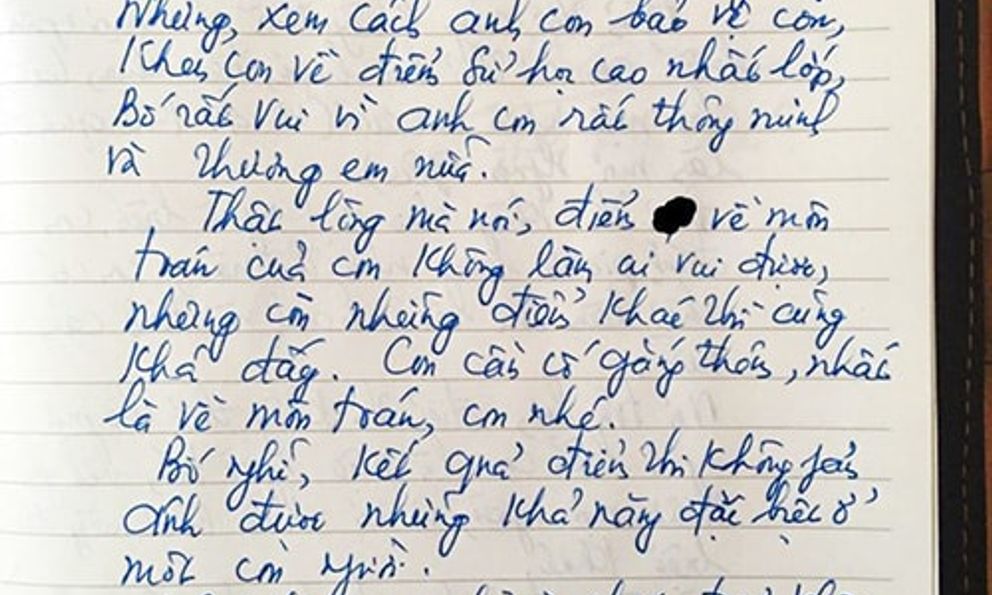 Nhưng, xem cách anh con bảo vệ con,
khen con về điểm sử học cao nhất lớp,
Bố rất vui vì anh con rất thông minh
và thương em nữa.
Thật lòng mà nói, điểm về môn
toán của con không làm ai vui được,
nhưng còn những điểm khác thì cũng
khá đấy. Con cần cố gắng thêm, nhất
là về môn toán, con nhé.
Bố nghĩ, kết quả điểm thi không phản
ánh được những khả năng đặc biệt ở
một con người.